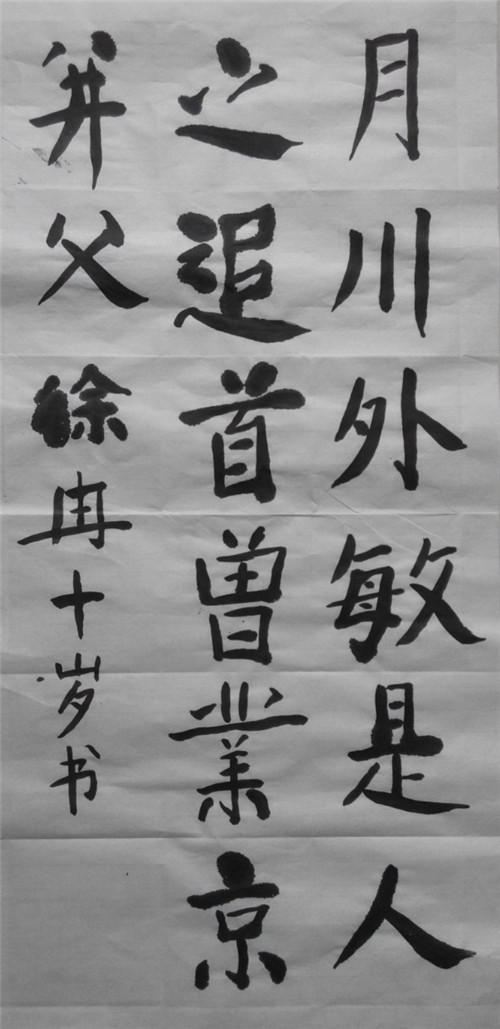 月川外敏是人
之追首曾業京
并父徐冉十岁书